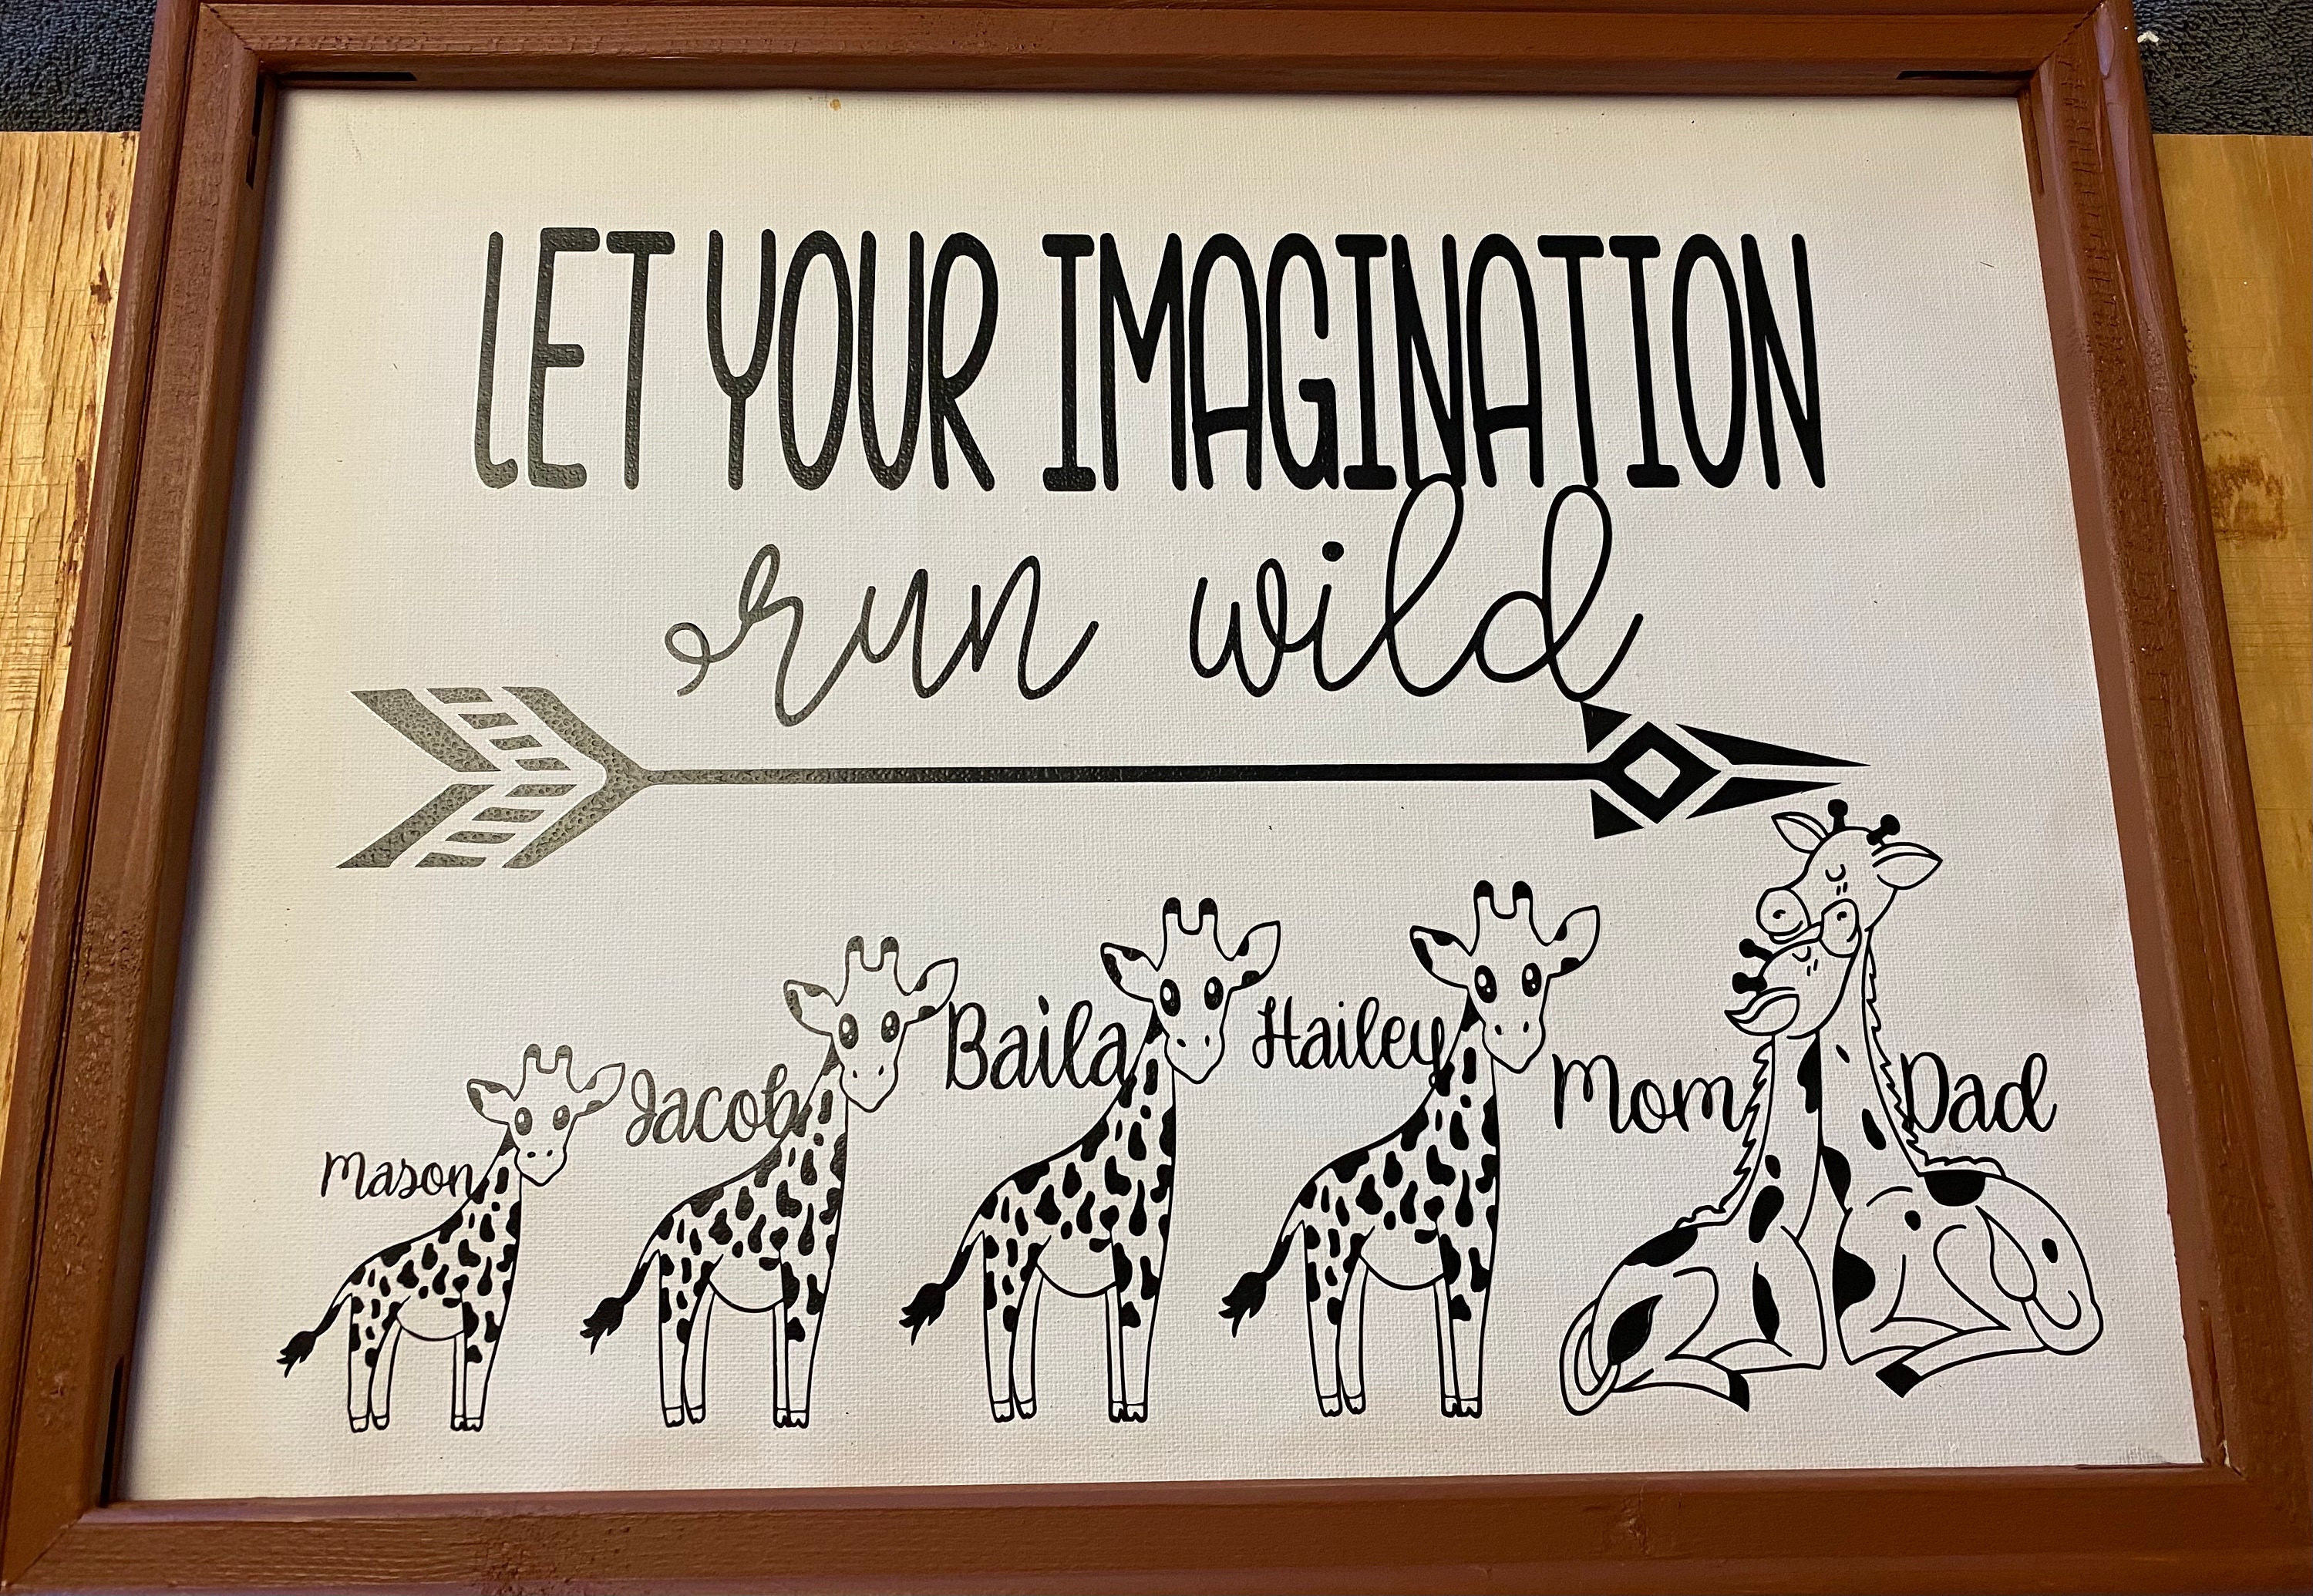 LET YOUR IMAGINATION
run wild
Mason Jacob Baila Hailey Mom Dad